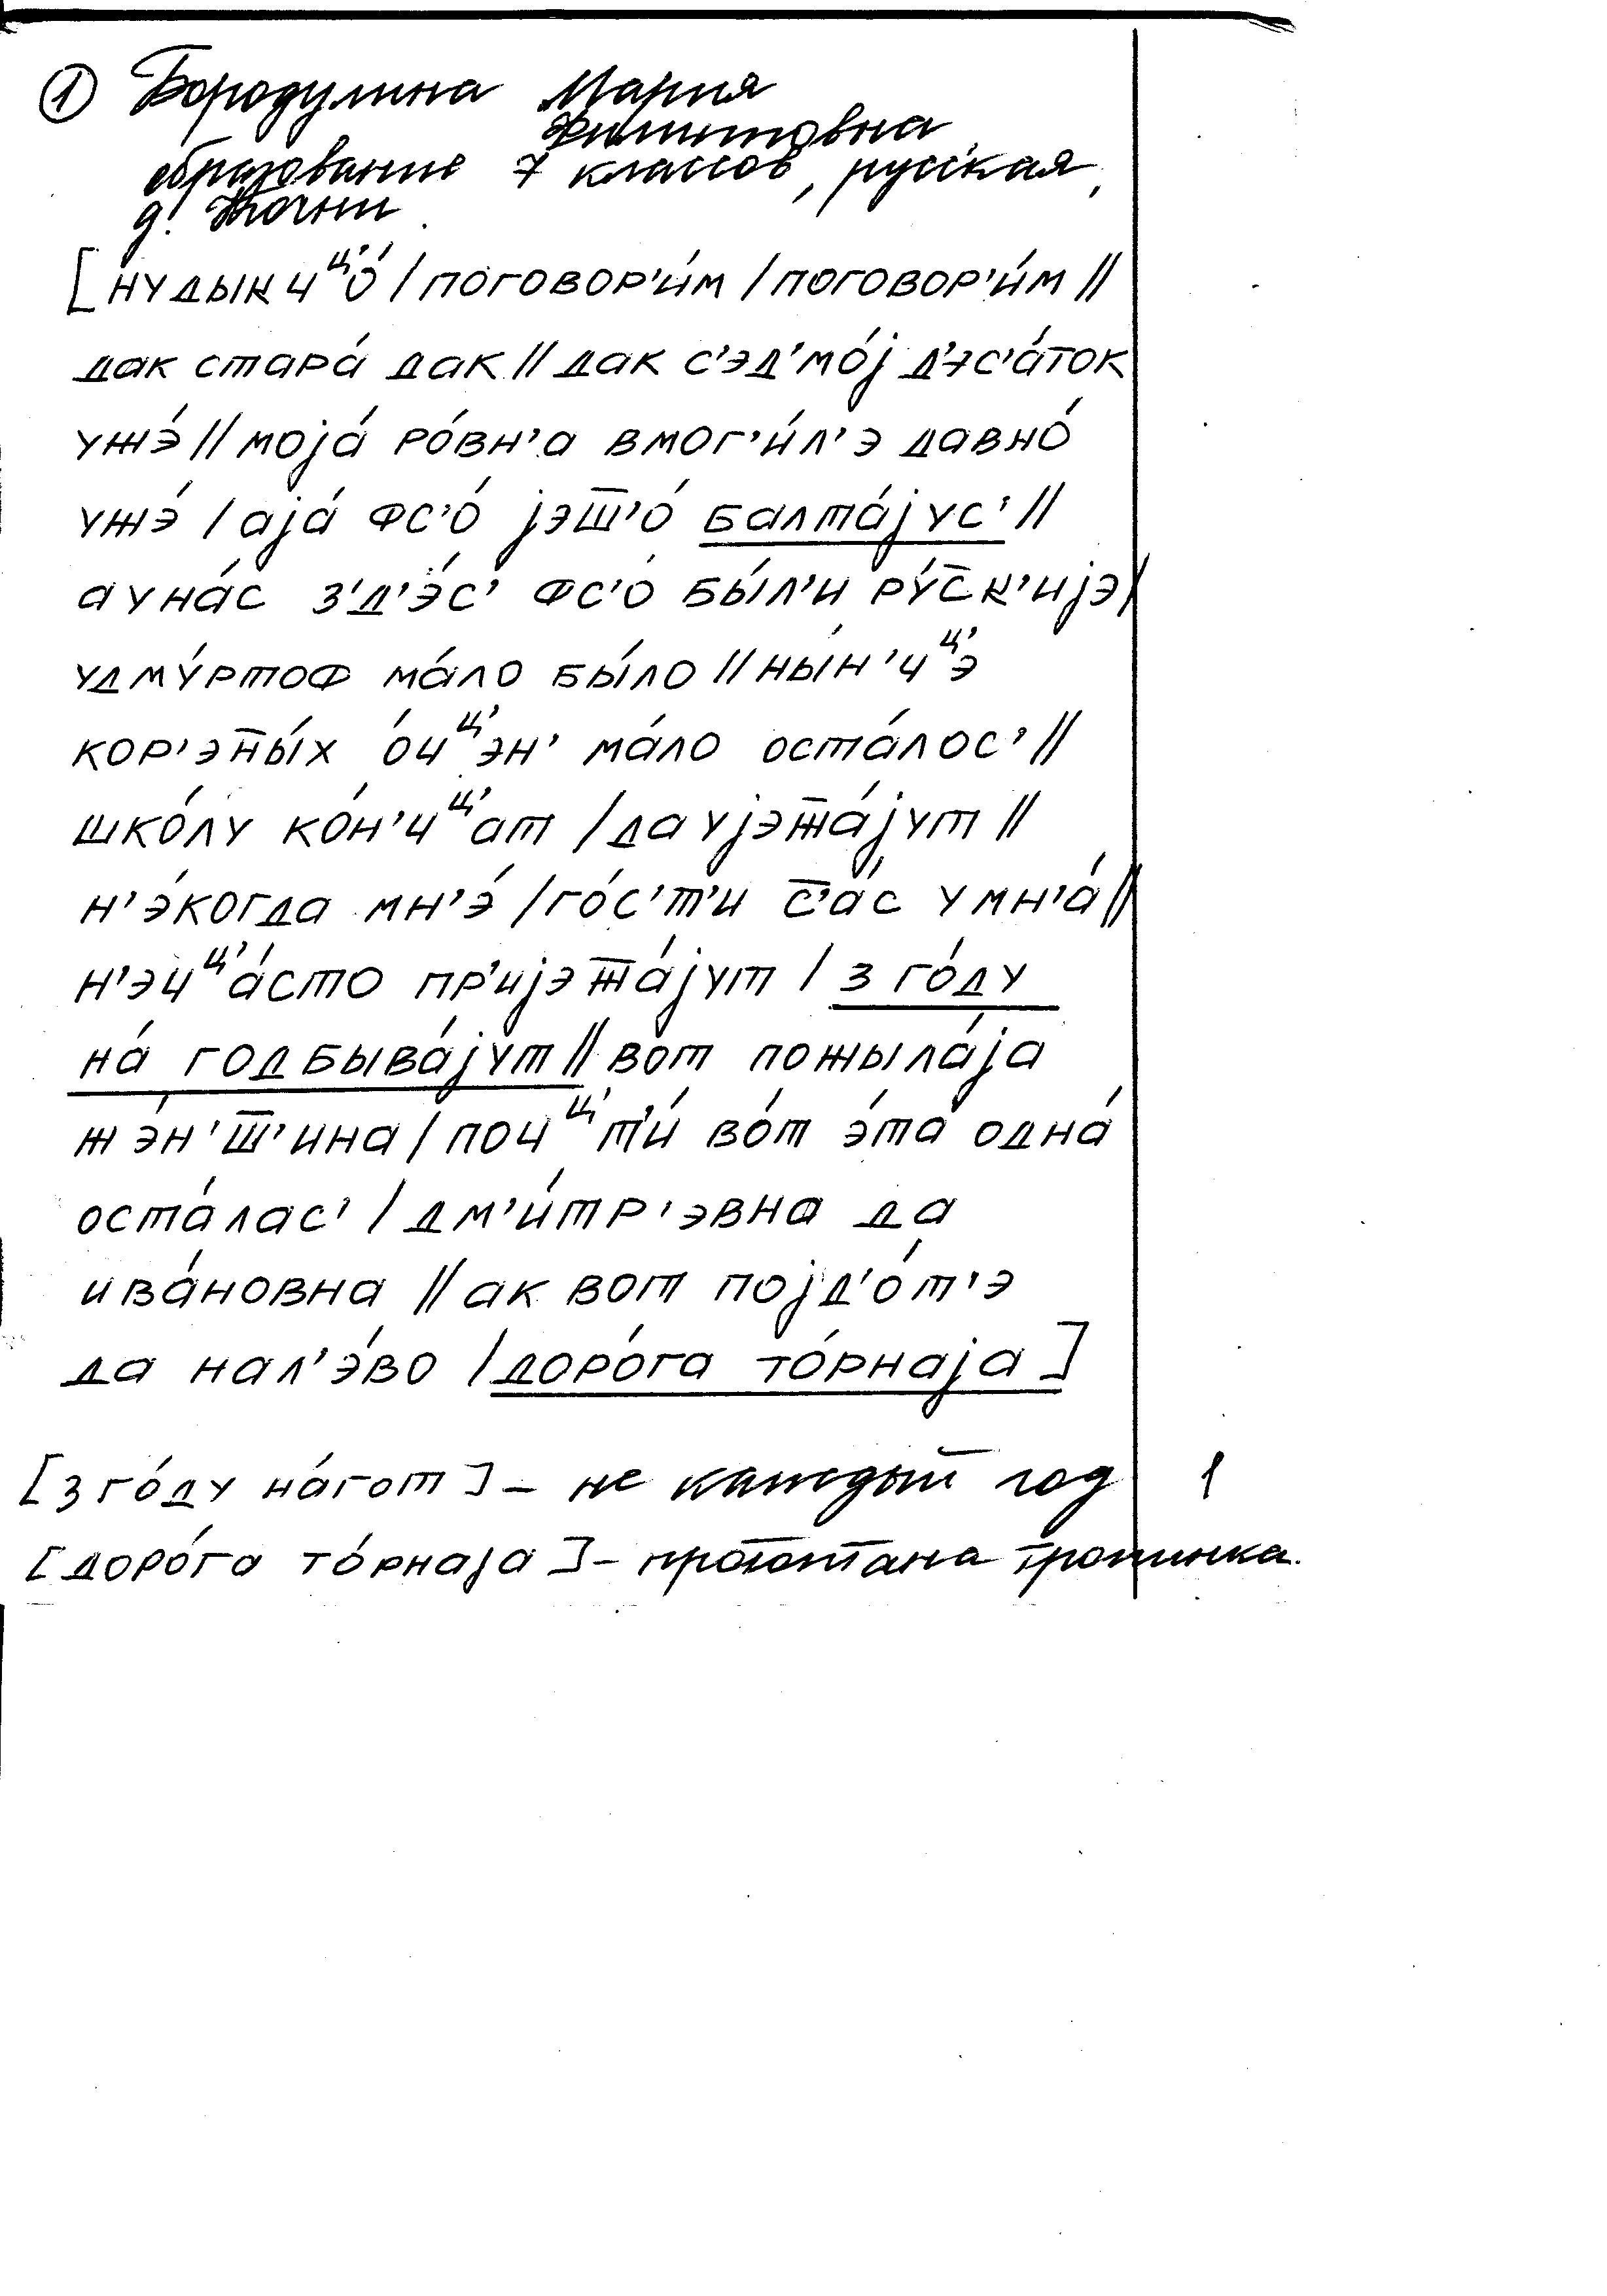 ① Бородулина Мария
Филипповна
образование 7 классов, русская,
д.
[нудыкчᶣо́ / поговор'и́м / поговор'и́м //
дак стара́ дак // дак с'эд'мо́j д'эс'а́ток
ужэ́ // моjа́ ро́вн'а вмог'и́л'э давно́
ужэ́ / аjа́ фс'о́ jэш̅'о́ балта́jус' //
а уна́с з'д'э́с' фс'о бы́л'и ру́с̅к'иjэ /
удму́ртоф ма́ло бы́ло // ны́н'чᶣ'э
кор'эн̅ы́х о́чᶣ'эн' ма́ло оста́лос' //
шко́лу ко́н'чᶣ'ат / да уjэж̅а́jут //
н'э́когда мн'э́ / го́с'т'и с̅'а́с умн'а́ //
н'эчᶣ'а́сто пр'иjэж̅а́jут / з го́ду
на́ год быва́jут // вот пожыла́jа
жэ́н'ш̅'ина / почᶣ'т'и́ во́т э́та одна́
оста́лас' / дм'и́тр'эвна да
ива́новна // ак вот поjд'о́т'э
да нал'э́во / доро́га то́рнаjа]
[з го́ду на́гот] – не каждый год 1
[доро́га то́рнаjа] – протоптана тропинка.